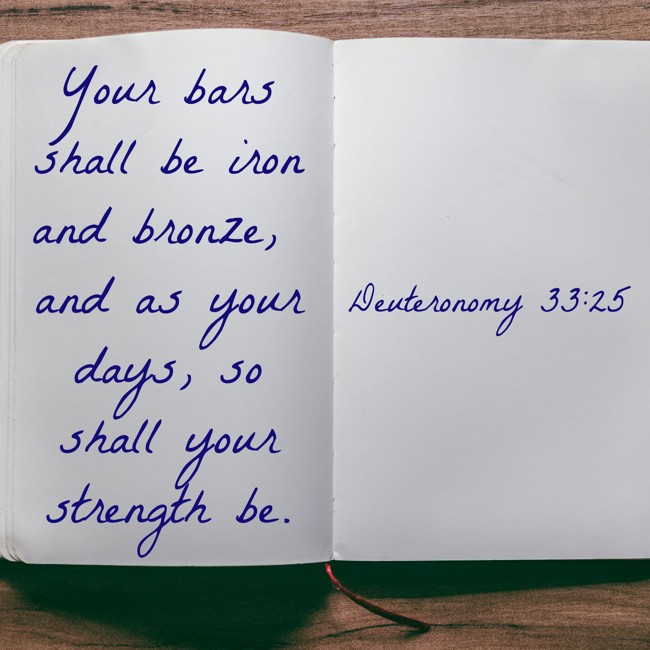 Your bars
shall be iron
and bronze,
and as your
days, so
shall your
strength be.
Deuteronomy 33:25